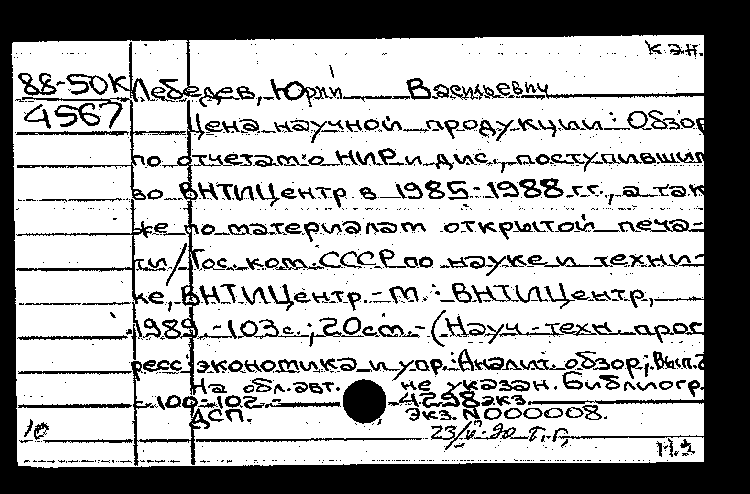 кэн.
88-50К Лебедев, Юрий Васильевич
4567 Цена научной продукции: Обзор
по отчетам о НИР и дис., поступившим
во ВНТИЦентр в 1985-1988 гг., а так
же по материалам открытой печа-
ти / Гос. ком. СССР по науке и техни-
ке, ВНТИЦентр. - М.: ВНТИЦентр,
1989. - 103 с.; 20 см. - (Науч.-техн. прог
ресс: экономика и упр.: Аналит. обзор; Вып. 2
На обл. авт. не указан. Библиогр.
- 100-102. - 4298 экз.
ДСП. Экз. N000008.
10 23/V-90 Т.Г.